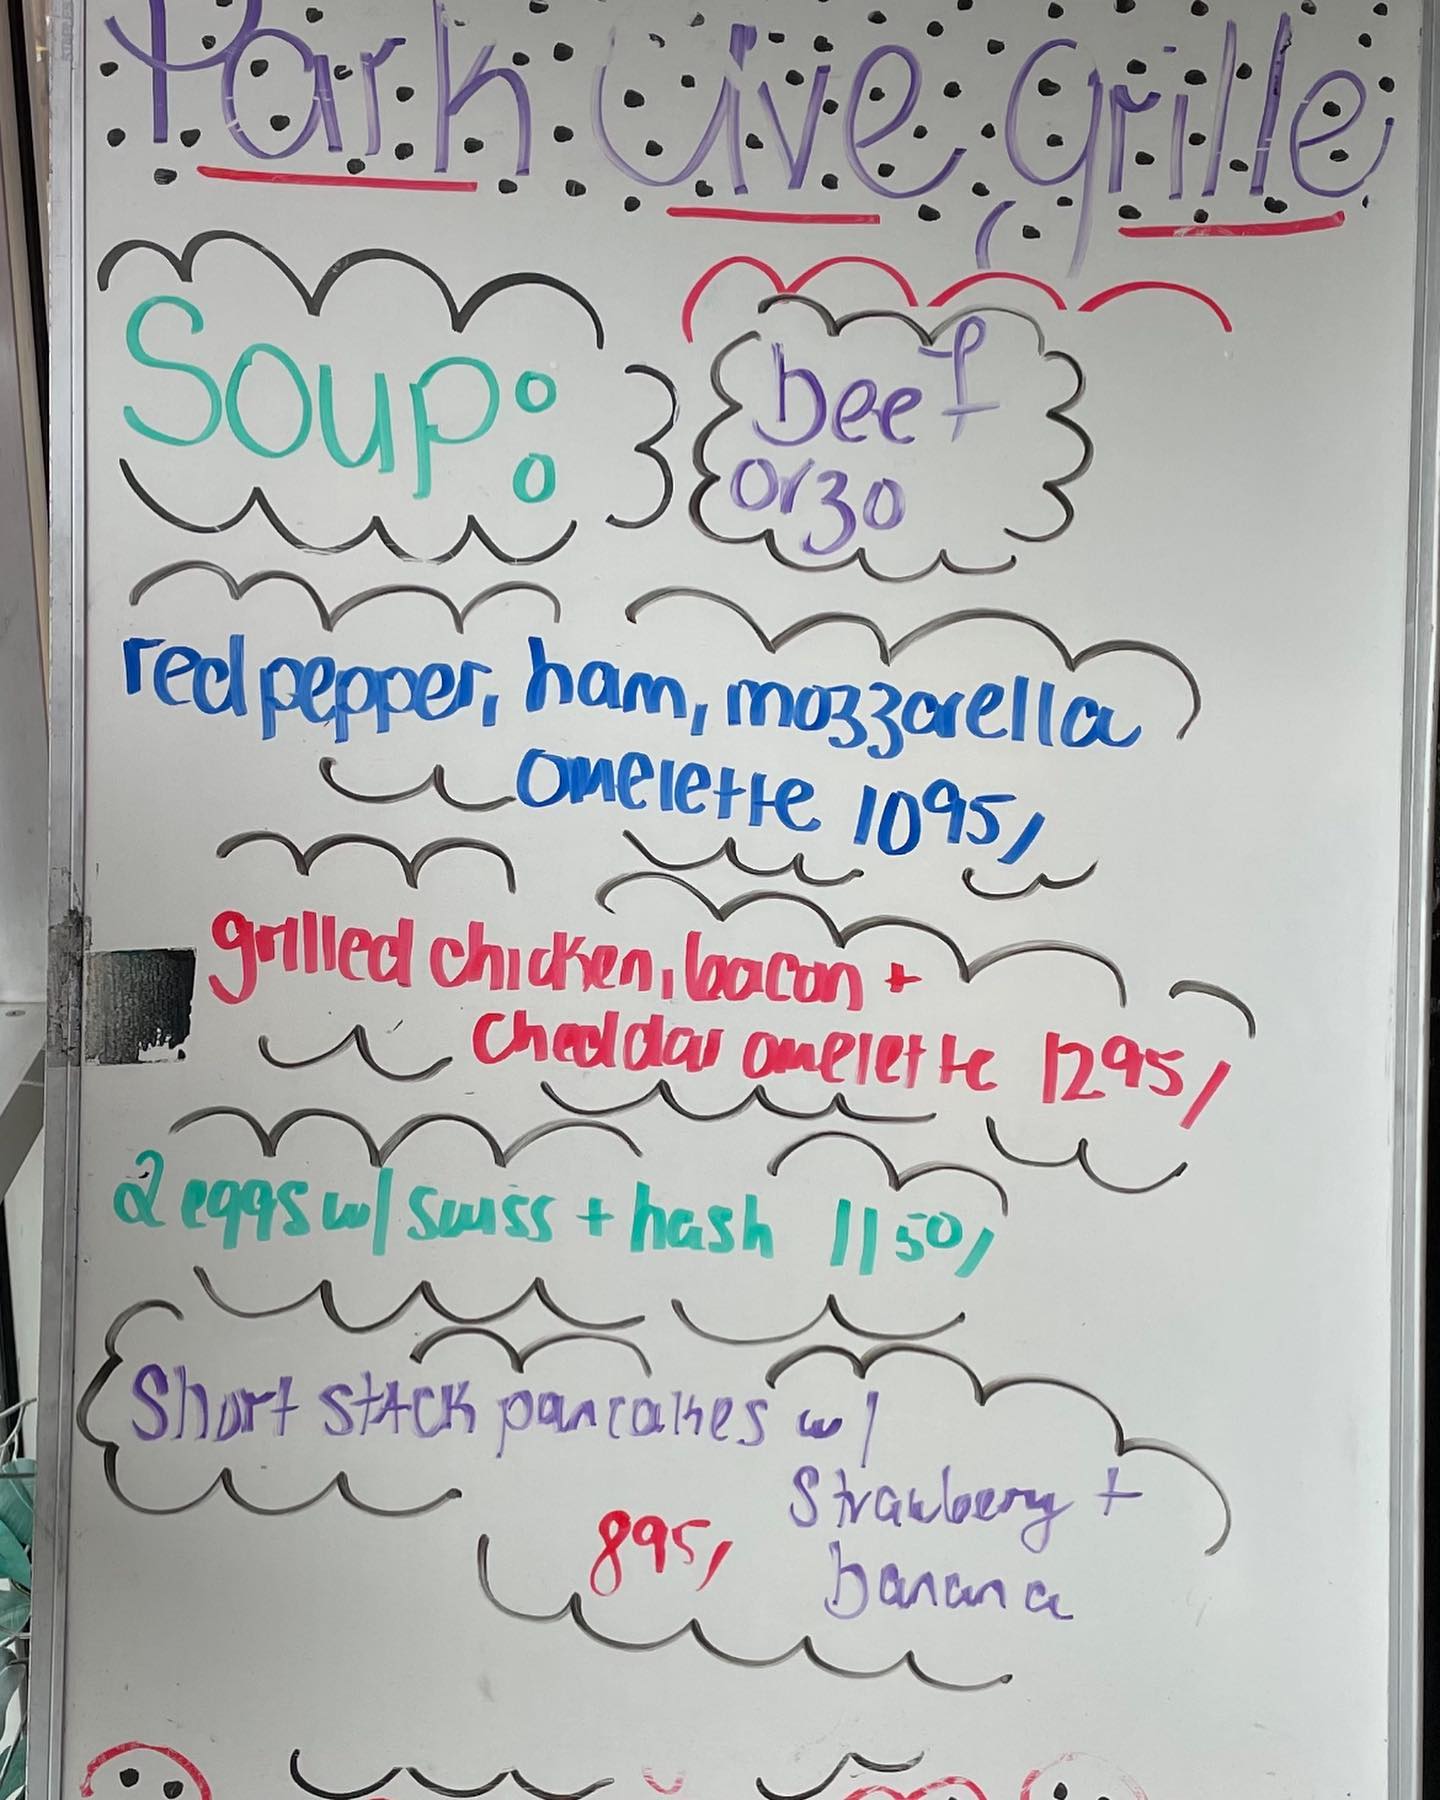 Park Ave, grille
Soup:
beef
orzo
red pepper, ham, mozzarella
omelette 1095/
grilled chicken, bacon +
cheddar omelette 1295/
2 eggs w/ swiss + hash 1150/
Short stack pancakes w/
strawberry +
895/
banana